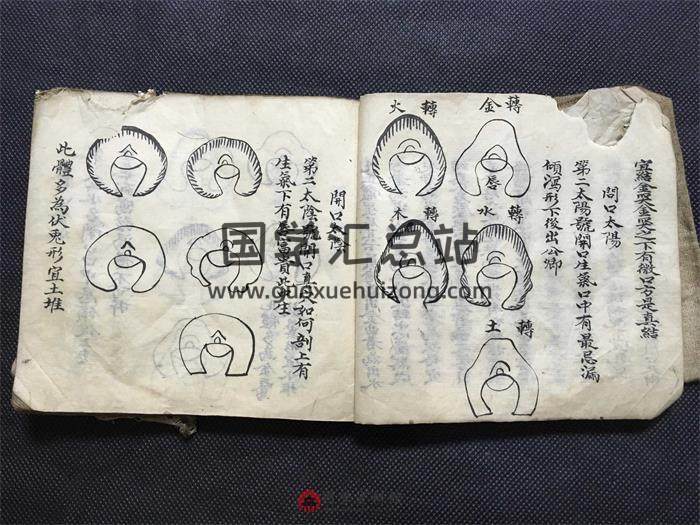 之下有微口方是真結
口太陽
第一太陽號開口生氣口中有最忌漏
傾瀉形下後出公卿
轉金
唇
轉火
轉水
轉木
轉土
開口
第二太陰號開口真如何剖上有
生氣下有富貴此生
此體多為伏兔形宜土堆
国学汇总站
www.guoxuehuizong.com